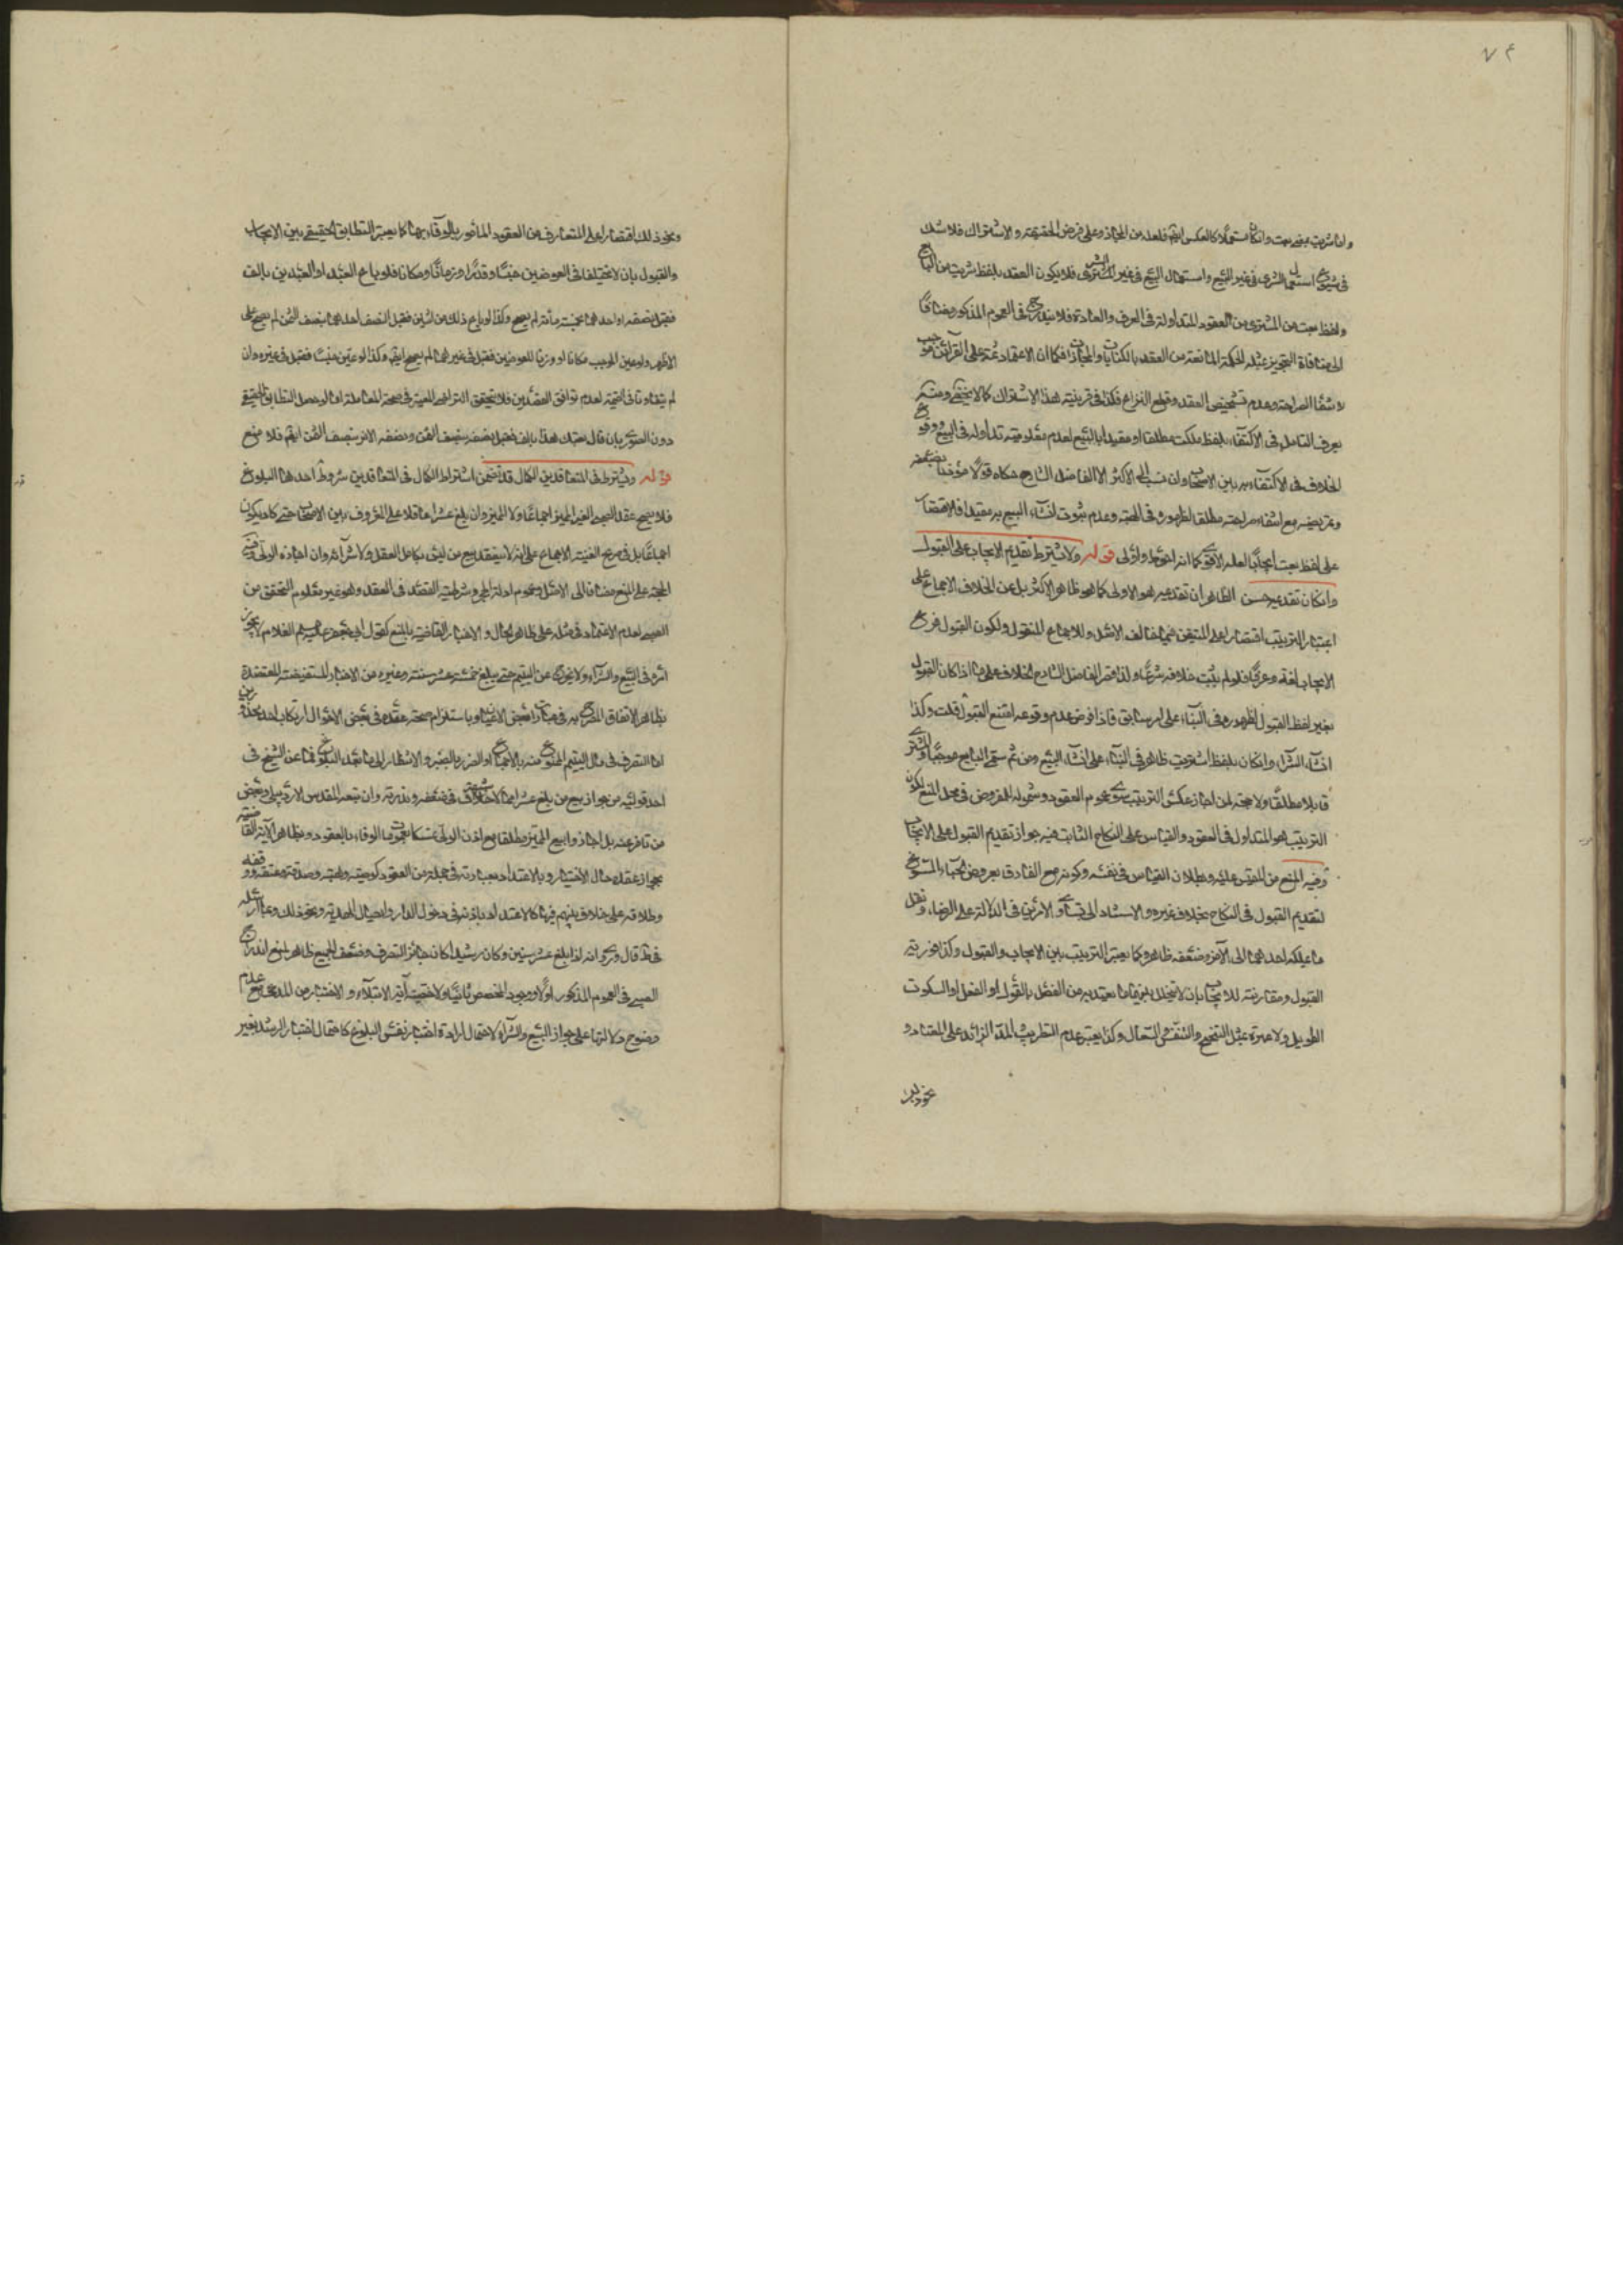 ٧٤
واما شريت بمعنى بعت وان كان مستعملا كالعكس ايضا فلعله من المجاز وعلى فرض الحقيقة والاشتراك فلا شك
فى شيوع استعمال الشرى فى غير البيع واستعمال البيع فى غير الشرى فلا يكون العقد بلفظ شريت من البايع
ولفظ بعت من المشترى من العقود المتداولة فى العرف والعادة فلا يندرج فى العموم المذكور مضافا
الى منافاة التجويز بمثله للحكمة المانعة من العقد بالكنايات والمجازات فكما ان الاعتماد ثمة على القرائن موجب
لانتفاء الصراحة وعدم تشخيص العقد وقطع النزاع فكذا فى قرينة هذا الاشتراك كما لا يخفى ومنه
يعرف التامل فى الاكتفاء بلفظ ملكت مطلقا او مقيدا بالبيع لعدم معلومية تداوله فى البيع ووقوع
الخلاف فى الاكتفاء به بين الاصحاب وان نسبه الى الاكثر الا الفاضل الشارح حكاه قولا مؤذنا بضعفه
وتمريضه مع انتفاء صراحته مطلقا لظهوره فى الهبة وعدم ثبوت انشاء البيع به مقيدا فالاقتصار
على لفظ بعت ايجابا لعله الاقوى كما انه احوط واولى قوله ولا يشترط تقديم الايجاب على القبول
وان كان تقديمه حسن الظاهر ان تقديمه هو الاولى كما هو ظاهر الاكثر بل عن الخلاف الاجماع على
اعتبار الترتيب اقتصارا على المتيقن فيما خالف الاصل وللاجماع المنقول ولكون القبول فرع
الايجاب لغة وعرفا فلو لم يثبت خلافه شرعا ولذا قصر الفاضل الشارح الخلاف على ما اذا كان القبول
بغير لفظ القبول لظهوره فى البناء على امر سابق فاذا فرض عدم وقوعه امتنع القبول قلت وكذا
انشاء الشراء وان كان بلفظ اشتريت ظاهر فى البناء على انشاء البيع ومن ثم سمى البايع موجبا والمشترى
قابلا مطلقا ولا حجة لمن اجاز عكس الترتيب سوى عموم العقود وشموله للمفروض فى محل المنع لكون
الترتيب هو المتداول فى العقود والقياس على النكاح الثابت فيه جواز تقديم القبول على الايجاب
وفيه المنع من المقيس عليه وبطلان القياس فى نفسه وكونه مع الفارق بعروض الحياء المسوغ
لتقديم القبول فى النكاح بخلاف غيره والاستناد الى تساوى الامرين فى الدلالة على الرضاء ونقل
ما يملكه احدهما الى الاخر وضعفه ظاهر وكما يعتبر الترتيب بين الايجاب والقبول وكذا فورية
القبول ومقارنته للايجاب بان لا يتخلل بينهما ما يعتد به من الفصل بالقول او الفعل او السكوت
الطويل ولا عبرة بمثل التنحنح والتنفس والسعال وكذا يعتبر عدم التطريب المد الزائد على المعتاد و
نحو ذلك
ونحو ذلك اقتصارا على المتعارف من العقود المامور بالوفاء بها كما يعتبر التطابق الحقيقى بين الايجاب
والقبول بان لا يختلفا فى العوضين جنسا وقدرا وزمانا ومكانا فلو باع العبد او العبدين بالف
فقبل نصفه او احدهما بخمسمائة لم يصح وكذا لو باع ذلك من اثنين فقبل النصف احدهما بنصف الثمن لم يصح على
الاظهر ولو عين الموجب مكانا او وزنا للعوضين فقبل فى غيرهما لم يصح ايضا وكذا لو عين جنسا فقبل فى غيره وان
لم يتفاوتا فى القيمة لعدم توافق القصدين فلا يتحقق التراضى المعتبر فى صحة المعاملة اما لو حصل التطابق الحقيقى
دون الصورى بان قال بعتك هذا بالف فقبل نصفه بنصف الثمن ونصفه الاخر بنصف الثمن ايضا فلا منع
قوله ويشترط فى المتعاقدين الكمال قد تضمن اشتراط الكمال فى المتعاقدين شروطا احدها البلوغ
فلا يصح عقد الصبى الغير المميز اجماعا ولا المميز وان بلغ عشرا عاقلا على المعروف بين الاصحاب حتى كاد يكون
اجماعا بل فى صريح الغنية الاجماع على انه لا ينعقد بيع من ليس بكامل العقل ولا شرائه وان اجازه الولى وهى
الحجة على المنع مضافا الى الاصل وعموم ادلة الحجر وشرطية القصد فى العقد وهو غير معلوم التحقق من
الصبى لعدم الاعتماد فى مثله على ظاهر الحال والاخبار القاضية بالمنع كقول ابى جعفر عليه السلام الغلام لا يجوز
امره فى البيع والشراء ولا يخرج عن اليتم حتى يبلغ خمسة عشر سنة وغيره من الاخبار المستفيضة المعتضدة
بظاهر الاتفاق المصرح به فى عبارات بعض الاعيان وباستلزام صحة عقده فى بعض الاحوال ارتكاب احد محذورين
اما التصرف فى مال اليتيم الممنوع منه بالاجماع او الضرر بالصبر والانتظار الى ما بعد البلوغ فما عن الشيخ فى
احد قوليه من جواز بيع من بلغ عشرا مما لا خلاف فى ضعفه وندرته وان تبعه المقدس الاردبيلى وبعض
من تاخر عنه بل اجاز وابيع المميز مطلقا مع اذن الولى تمسكا بعموم الوفاء بالعقود وبظاهر الاية القاضية
بجواز عقده حال الاختيار وبالاعتداد بعبادته فى جملة من العقود كوصيته وهبته وصدقته وعتقه ووقفه
وطلاقه على خلاف بينهم فيها كالاعتداد باذنه فى دخول الدار وايصال الهدية ونحو ذلك وبما ارسله
فى ط قال وروى انه اذا بلغ عشر سنين وكان رشيدا كان جائز التصرف وضعف الجميع ظاهر لمنع اندراج
الصبى فى العموم المذكور اولا ووجود المخصص ثانيا ولاختصاص اية الابتلاء والاختبار من المدعى مع عدم
وضوح دلالتها على جواز البيع والشراء لاحتمال ارادة اختبار نفس البلوغ كاحتمال اختبار الرشد بغير